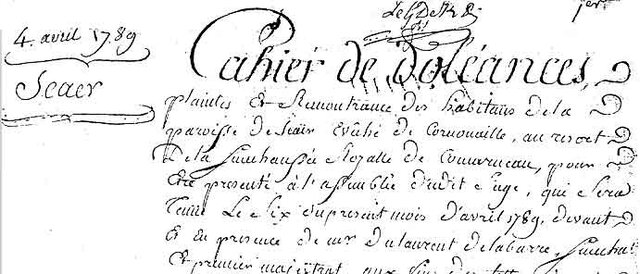 4. avril 1789
Scaer
Cahier de doléances,
plaintes Et Remontrance des habitans de la
paroisse de Scair Evêché de Cornouaille, au ressort
De la Senechaussée Royalle de Concarneau, pour
Etre presenté à l'assemblée dudit Siege, qui Sera
Tenue Le Six du present mois D'avril 1789, devant
Et En presence de mr du laurent de labarre, Senechal
Et premier magistrat, aux fins des